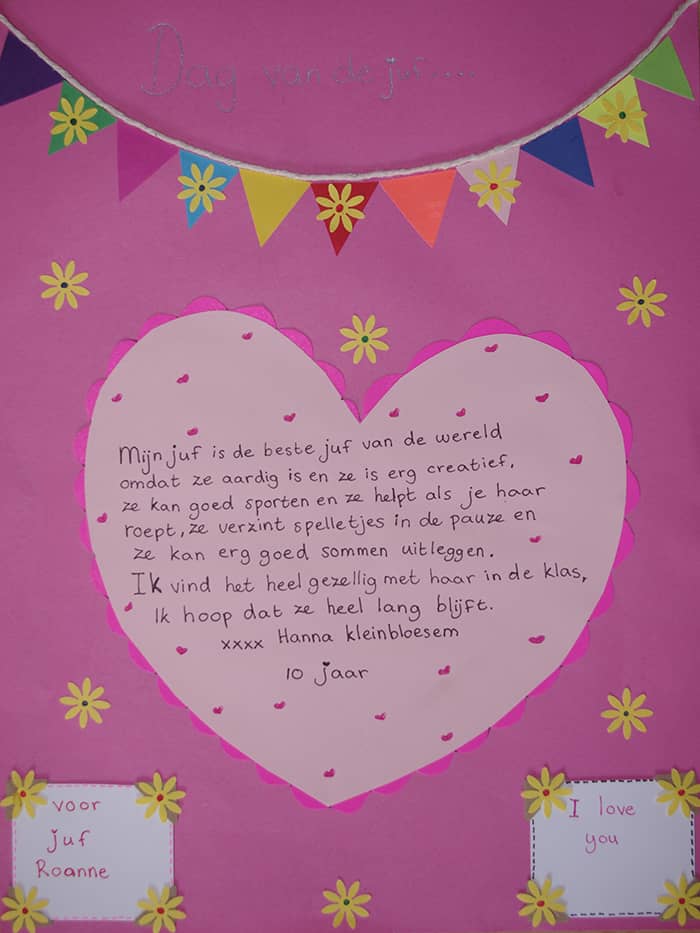 Dag van de juf....
Mijn juf is de beste juf van de wereld
omdat ze aardig is en ze is erg creatief,
ze kan goed sporten en ze helpt als je haar
roept, ze verzint spelletjes in de pauze en
ze kan erg goed sommen uitleggen.
Ik vind het heel gezellig met haar in de klas,
Ik hoop dat ze heel lang blijft.
xxxx Hanna kleinbloesem
10 jaar
voor
juf
Roanne
I love
you